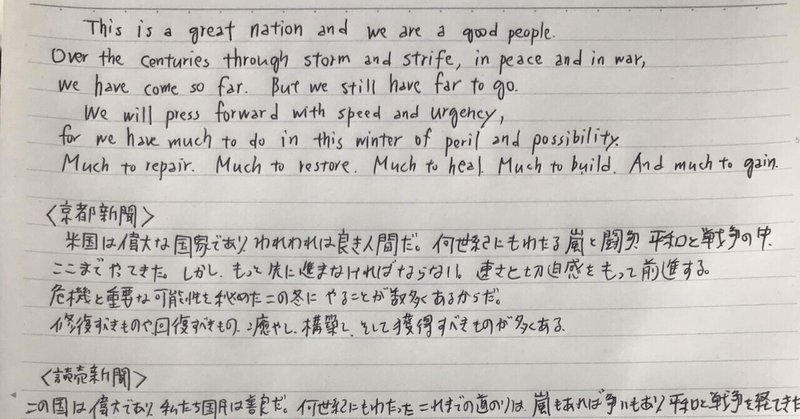 This is a great nation and we are a good people.
Over the centuries through storm and strife, in peace and in war,
we have come so far. But we still have far to go.
We will press forward with speed and urgency,
for we have much to do in this winter of peril and possibility.
Much to repair. Much to restore. Much to heal. Much to build. And much to gain.
〈京都新聞〉
米国は偉大な国家であり われわれは良き人間だ。何世紀にもわたる嵐と闘争、平和と戦争の中、
ここまでやってきた。しかし、もっと先に進まなければならない。速さと切迫感をもって前進する。
危機と重要な可能性を秘めたこの冬に やることが数多くあるからだ。
修復すべきものや回復すべきもの、癒やし、構築し、そして獲得すべきものが多くある。
〈読売新聞〉
この国は偉大であり 私たち国民は善良だ。何世紀にもわたったこれまでの道のりは、嵐もあれば争いもあり 平和と戦争を経てきた